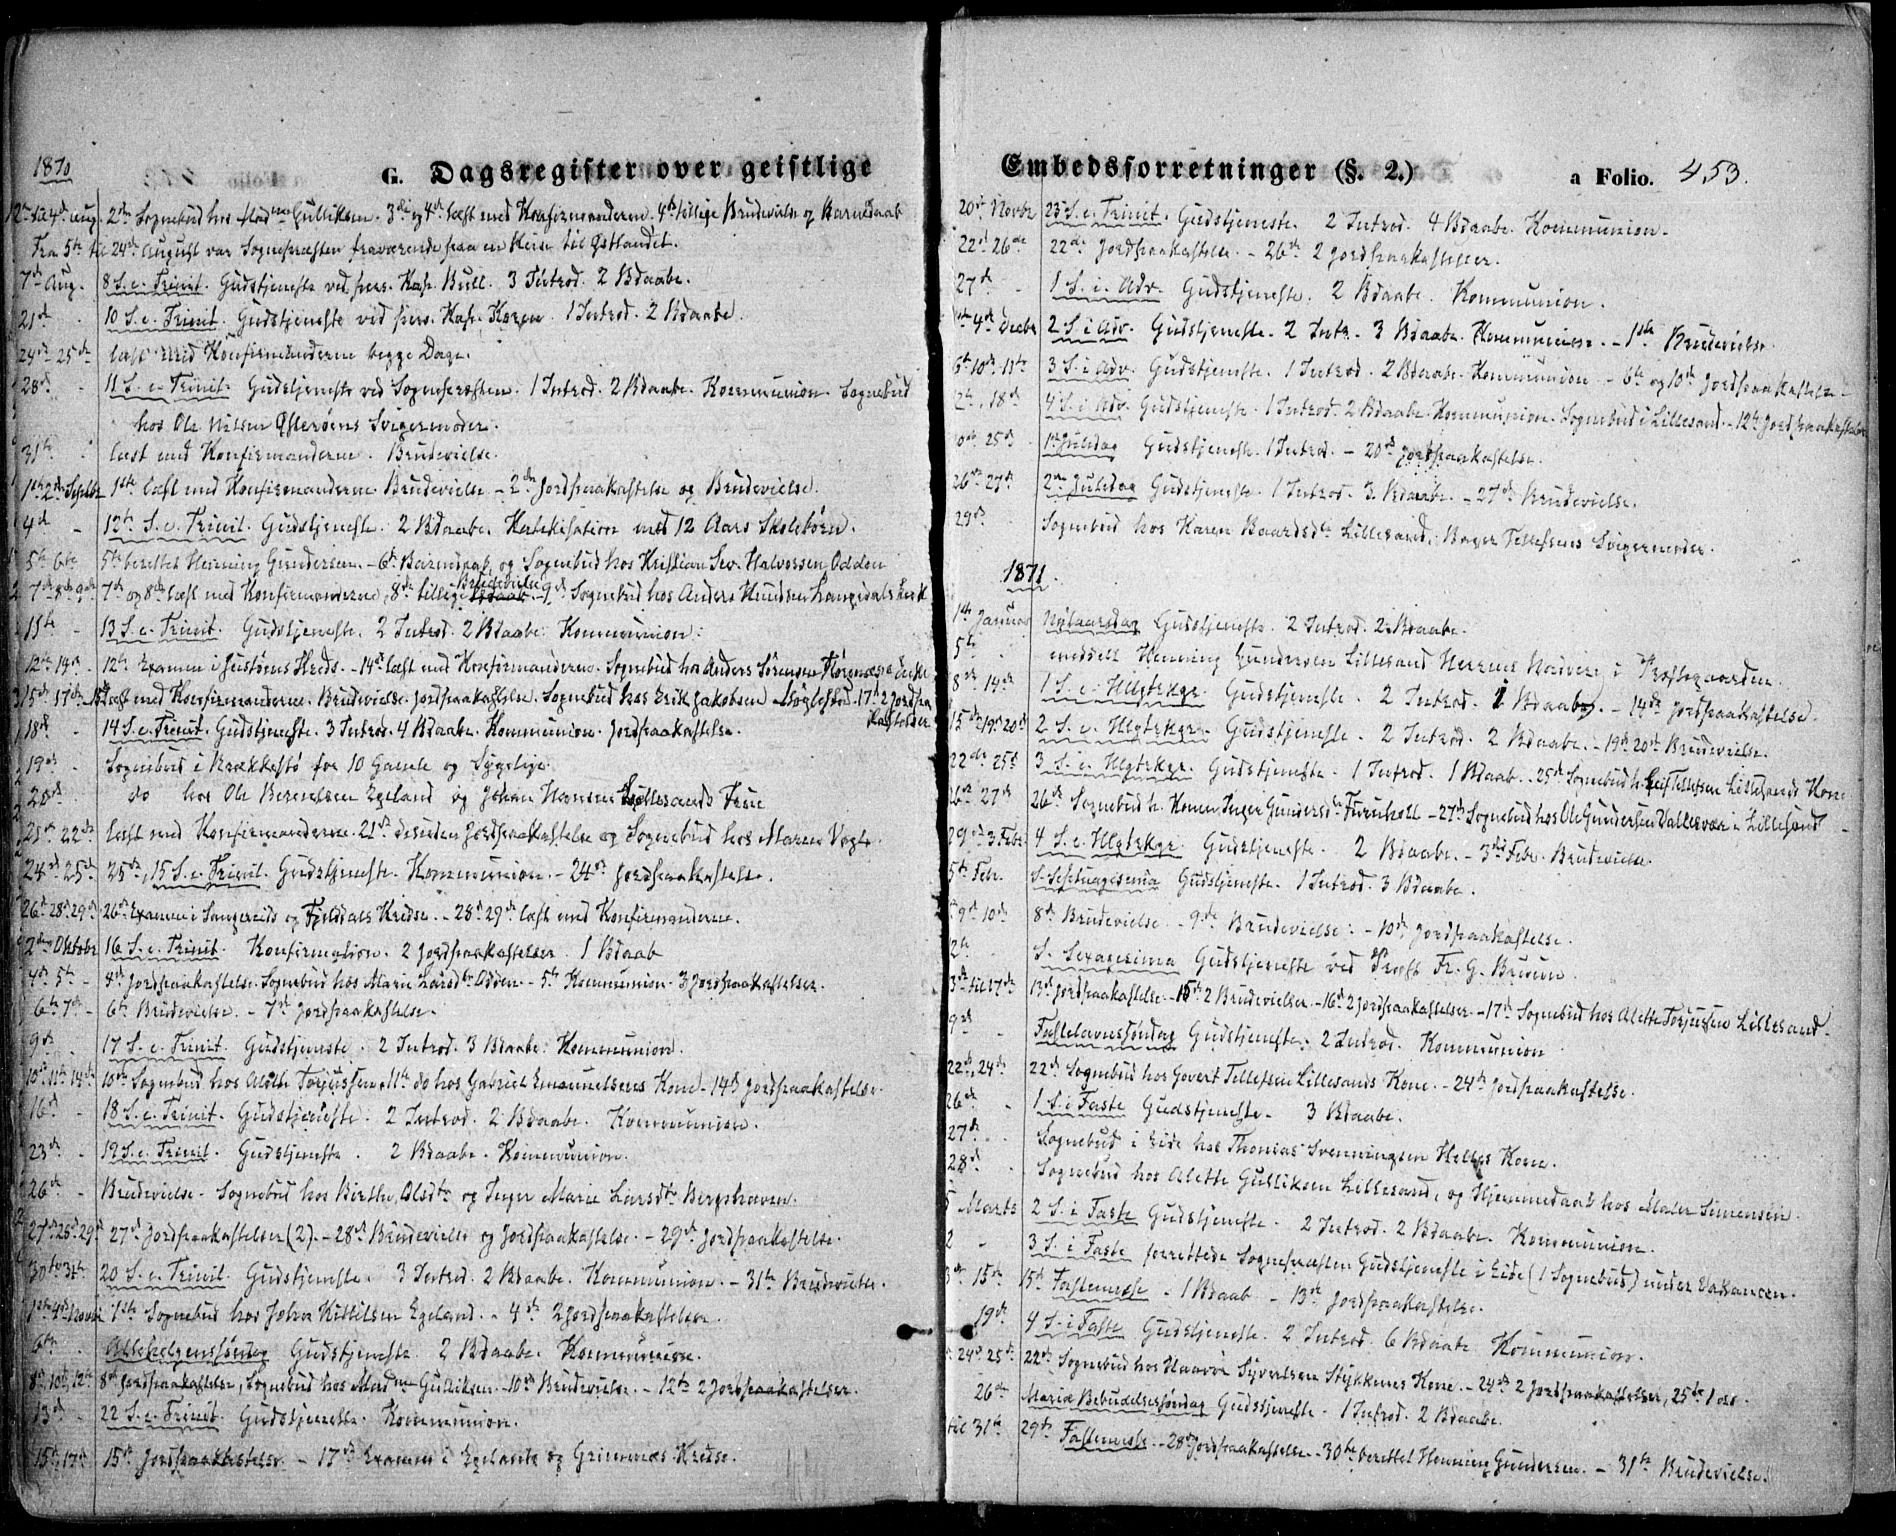 1870
G. Dagsregister over geistlige
2den til 4de Aug. 2den Sognebud hos Madme Gulliksen. 3die og 4de læst med Konfirmanderne. 4de tillige Brudevielse og Barnedaab
Fra 5te til 24de August var Sognepræsten fraværende paa en Reise til Østlandet.
7de Aug. 8 S. e. Trinit. Gudstjeneste ved pers. Kap. Bull. 3 Introd. 2 Bdaabe.
21de 10 S. e. Trinit. Gudstjeneste ved pers. Kap. Koren. 1 Introd. 2 Bdaabe.
24de 25de læst med Konfirmanderne begge Dage.
28de 11 S. e. Trinit. Gudstjeneste ved Sognepræsten. 1 Introd. 2 Bdaabe. Kommunion. Sognebud
hos Ole Nilsen Østerøens Svigermoder.
31te læst med Konfirmanderne. Brudevielse.
1ste 2den Septbr 1ste læst med Konfirmanderne. Brudevielse - 2den Jordpaakastelse og Brudevielse.
4de - 12te S. e. Trinit. Gudstjeneste. 2 Bdaabe. Katekisation med 12 Aars Skolebørn.
5te 6te 5te berettet Henning Gundersen. - 6te Barnedaab og Sognebud hos Kristian Sev. Halvorsen Odden
7de 8de 9de 7de og 8de læst med Konfirmanderne, 8de tillige Brudevielse - 9de Sognebud hos Anders Knudsen Langedals Enke
11te - 13 S. e. Trinit. Gudstjeneste. 2 Introd. 2 Bdaabe. Kommunion.
12te 14de - 12te Examen i Justøens Kreds. - 14de læst med Konfirmanderne. Sognebud hos Anders Sörensen Enke
15de 17de 15de læst med Konfirmanderne. Brudevielse. Jordpaakastelse. Sognebud hos Erik Jakobsen Møglestu. 17de 2 Jordpaa
kastelser
18de 14 S. e. Trinit. Gudstjeneste. 3 Introd. 4 Bdaabe. Kommunion. Jordpaakastelse.
19de - Sognebud i Brækkestø for 10 Gamle og Sygelige.
20de do hos Ole Berentsen Egeland og Johan Hansen Lillesands Frue
21de 22de læst med Konfirmanderne. 21de desuden Jordpaakastelse og Sognebud hos Maren Vogt.
24de 25de 25de, 15 S. e. Trinit. Gudstjeneste. Kommunion. - 24de Jordpaakastelse.
26de 28de 29de 26de Examen i Sangereids og Fjeldals Kredse. - 28de 29de læst med Konfirmanderne.
2den Oktober 16 S. e. Trinit. Konfirmation. 2 Jordpaakastelser. 1 Bdaab
4de 5te - 4de Jordpaakastelse. Sognebud hos Marie Larsdtr Odden. - 5te Kommunion. 3 Jordpaakastelser.
6te 7de - 6te Brudevielse. - 7de Jordpaakastelse.
9de 17 S. e. Trinit. Gudstjeneste. 2 Introd. 3 Bdaabe. Kommunion.
10de 11te 14de 10de Sognebud hos Alette Torjussen. 11te do hos Gabriel Emanuelsens Kone. 14de Jordpaakastelse.
16de - 18 S. e. Trinit. Gudstjeneste. 2 Introd. 2 Bdaabe. Kommunion.
23de - 19 S. e. Trinit. Gudstjeneste. 2 Bdaabe. Kommunion.
26de - Brudevielse. Sognebud hos Birthe Olsdtr og Inger Marie Larsdtr Bergshaven.
27de 28de 29de 27de Jordpaakastelser (2). - 28de Brudevielse og Jordpaakastelse. - 29de Jordpaakastelse.
30te 31te 20 S. e. Trinit. Gudstjeneste. 3 Introd. 2 Bdaabe. Kommunion. - 31te Brudevielse.
1ste 4de Novbr 1ste Sognebud hos Johan Kittilsen Egeland. - 4de 2 Jordpaakastelser.
6te Allehelgenssöndag Gudstjeneste. 2 Bdaabe. Kommunion.
8de, 10de, 12te 8de Jordpaakastelse, Sognebud hos Madme Gulliksen. 10de Brudevielse. - 12te 2 Jordpaakastelser.
13de - 22 S. e. Trinit. Gudstjeneste. Kommunion.
15de, 17de 15de Jordpaakastelse - 17de Examen i Egelands og Grimenæs Kredse.
Embedsforretninger (§. 2.) a Folio. 453.
20de Novbr 23 S. e. Trinit. Gudstjeneste. 2 Introd. 4 Bdaabe. Kommunion.
22de 26de 22de Jordpaakastelse. - 26de 2 Jordpaakastelser.
27de - 1 S. i Adv. Gudstjeneste. 2 Bdaabe. Kommunion.
1ste 4de Decbr 2 S. i Adv. Gudstjeneste. 2 Intr. 3 Bdaabe. Kommunion. - 1ste Brudevielse.
6te 10de 11te 3 S. i Adv. Gudstjeneste. 1 Introd. 2 Bdaabe. Kommunion. - 6te og 10de Jordpaakastelse.
12te, 18de 4 S. i Adv. Gudstjeneste. 1 Introd. 2 Bdaabe. Kommunion. Sognebud i Lillesand. - 12te Jordpaakastelse
20de 25de 1ste Juledag Gudstjeneste. 1 Introd. - 20de Jordpaakastelse.
26de 27de 2den Juledag Gudstjeneste. 1 Introd. 3 Bdaabe. - 27de Brudevielse.
29de Sognebud hos Karen Baardsdtr Lillesand, Bager Tellefsens Svigermoder.
1871.
1ste Januar Nytaarsdag Gudstjeneste. 2 Introd. 2 Bdaabe.
5te meddelt Henning Gundersen Lillesand Herrens Nadvere i Prestegaarden.
8de 14de 1 S. e. Hlgtrkgr. Gudstjeneste. 2 Introd. 1 Bdaab. - 14de Jordpaakastelse.
15de 19de 20de 2 S. e. Hlgtrkgr. Gudstjeneste. 2 Introd. 2 Bdaabe. - 19de 20de Brudevielse.
22de 25de 3 S. e. Hlgtrkgr. Gudstjeneste. 1 Introd. 1 Bdaab. - 25de Sognebud h. Tellefsen Lillesands Kone
26de 27de 26de Sognebud h. Konen Inger Gundersdtr Furuholt - 27de Sognebud hos Ole Gundersen Vallesvær i Lillesand
29de 3 Febr. 4 S. e. Hlgtrkgr. Gudstjeneste. 2 Bdaabe. - 3die Febr. Brudevielse.
5te Febr. S. Septuagesima Gudstjeneste. 1 Introd. 3 Bdaabe.
9de 10de 8de Brudevielse. - 9de Brudevielse. - 10de Jordpaakastelse.
12te S. Sexagesima Gudstjeneste ved Fr. G. Bruun.
13de til 17de 13de Jordpaakastelse. - 15de 2 Brudevielser. - 16de 2 Jordpaakastelser. - 17de Sognebud hos Alette Torjussen Lillesand.
19de - Fastelavnssöndag Gudstjeneste. 2 Introd. Kommunion
22de, 24de 22de Sognebud hos Govert Tellefsen Lillesands Kone. - 24de Jordpaakastelse.
26de - 1 S. i Faste Gudstjeneste. 3 Bdaabe.
27de Sognebud i Eide hos Thomas Svenningsen Helles Kone.
28de Sognebud hos Alette Gulliksen Lillesand, og Hjemmedaab hos Maler Simensen.
5 Marts 2 S. i Faste Gudstjeneste. 2 Introd. 2 Bdaabe. Kommunion.
12 - 3 S. i Faste forrettede Sognepræsten Gudstjeneste i Eide (1 Sognebud) under Vakancen.
13de 15de 15de Fastemesse. 1 Bdaab - 13de Jordpaakastelse.
19de 4 S. i Faste Gudstjeneste. 2 Introd. 6 Bdaabe Kommunion.
24de 25de 22de Sognebud hos Haavor Syvertsen Stykkenes Kone. - 24de 2 Jordpaakastelser, 25de 1 do.
26de Mariæ Bebudelsessöndag Gudstjeneste. 1 Introd. 2 Bdaabe.
til 31te 29de Fastemesse. - 28de Jordpaakastelse. - 30te berettet Henning Gundersen. - 31te Brudevielse.